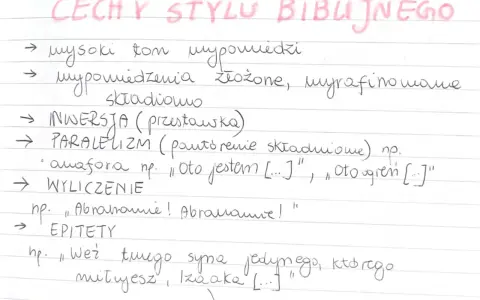 CECHY STYLU BIBLIJNEGO
→ wysoki ton wypowiedzi
→ wypowiedzenia złożone, wyrafinowane
składniowo
→ INWERSJA (przestawka)
→ PARALELIZM (powtórenie składniowe) np.
anafora np. „Oto jestem [...]", „Oto ogień [..]"
→ WYLICZENIE
np. „Abrahamie! Abrahamie!"
→ EPITETY
np. „Weź twego syna jedynego, którego
miłujesz, Izaaka [...]"